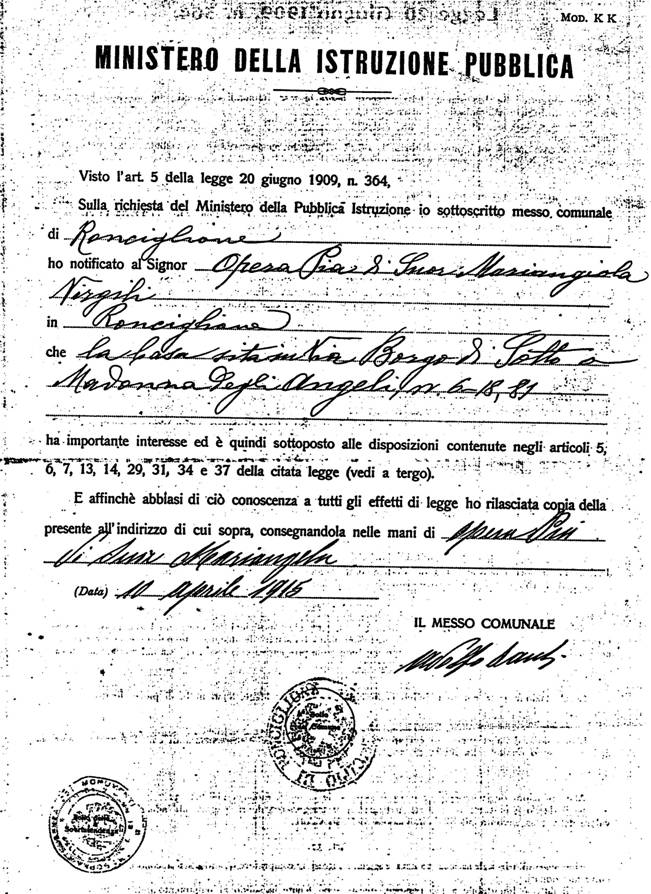 Legge 20 Giugno 1909, n. 364.
MOD. K K
MINISTERO DELLA ISTRUZIONE PUBBLICA
Visto l'art. 5 della legge 20 giugno 1909, n. 364,
Sulla richiesta del Ministero della Pubblica Istruzione io sottoscritto messo comunale
di Ronciglione
ho notificato al Signor Opera Pia di Suor Mariangiola
Virgili
in Ronciglione
che la Casa sita in Via Borgo di Sotto o
Madonna degli Angeli, n. 6-18, 81
ha importante interesse ed è quindi sottoposto alle disposizioni contenute negli articoli 5,
6, 7, 13, 14, 29, 31, 34 e 37 della citata legge (vedi a tergo).
E affinchè abbiasi di ciò conoscenza a tutti gli effetti di legge ho rilasciata copia della
presente all'indirizzo di cui sopra, consegnandola nelle mani di opera Pia
di Suor Mariangela
(Data) 10 aprile 1915
IL MESSO COMUNALE
DI RONCIGLIONE